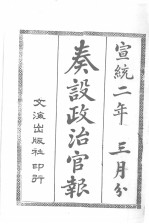 宣統二年 三月分
奏設政治官報
文海出版社印行